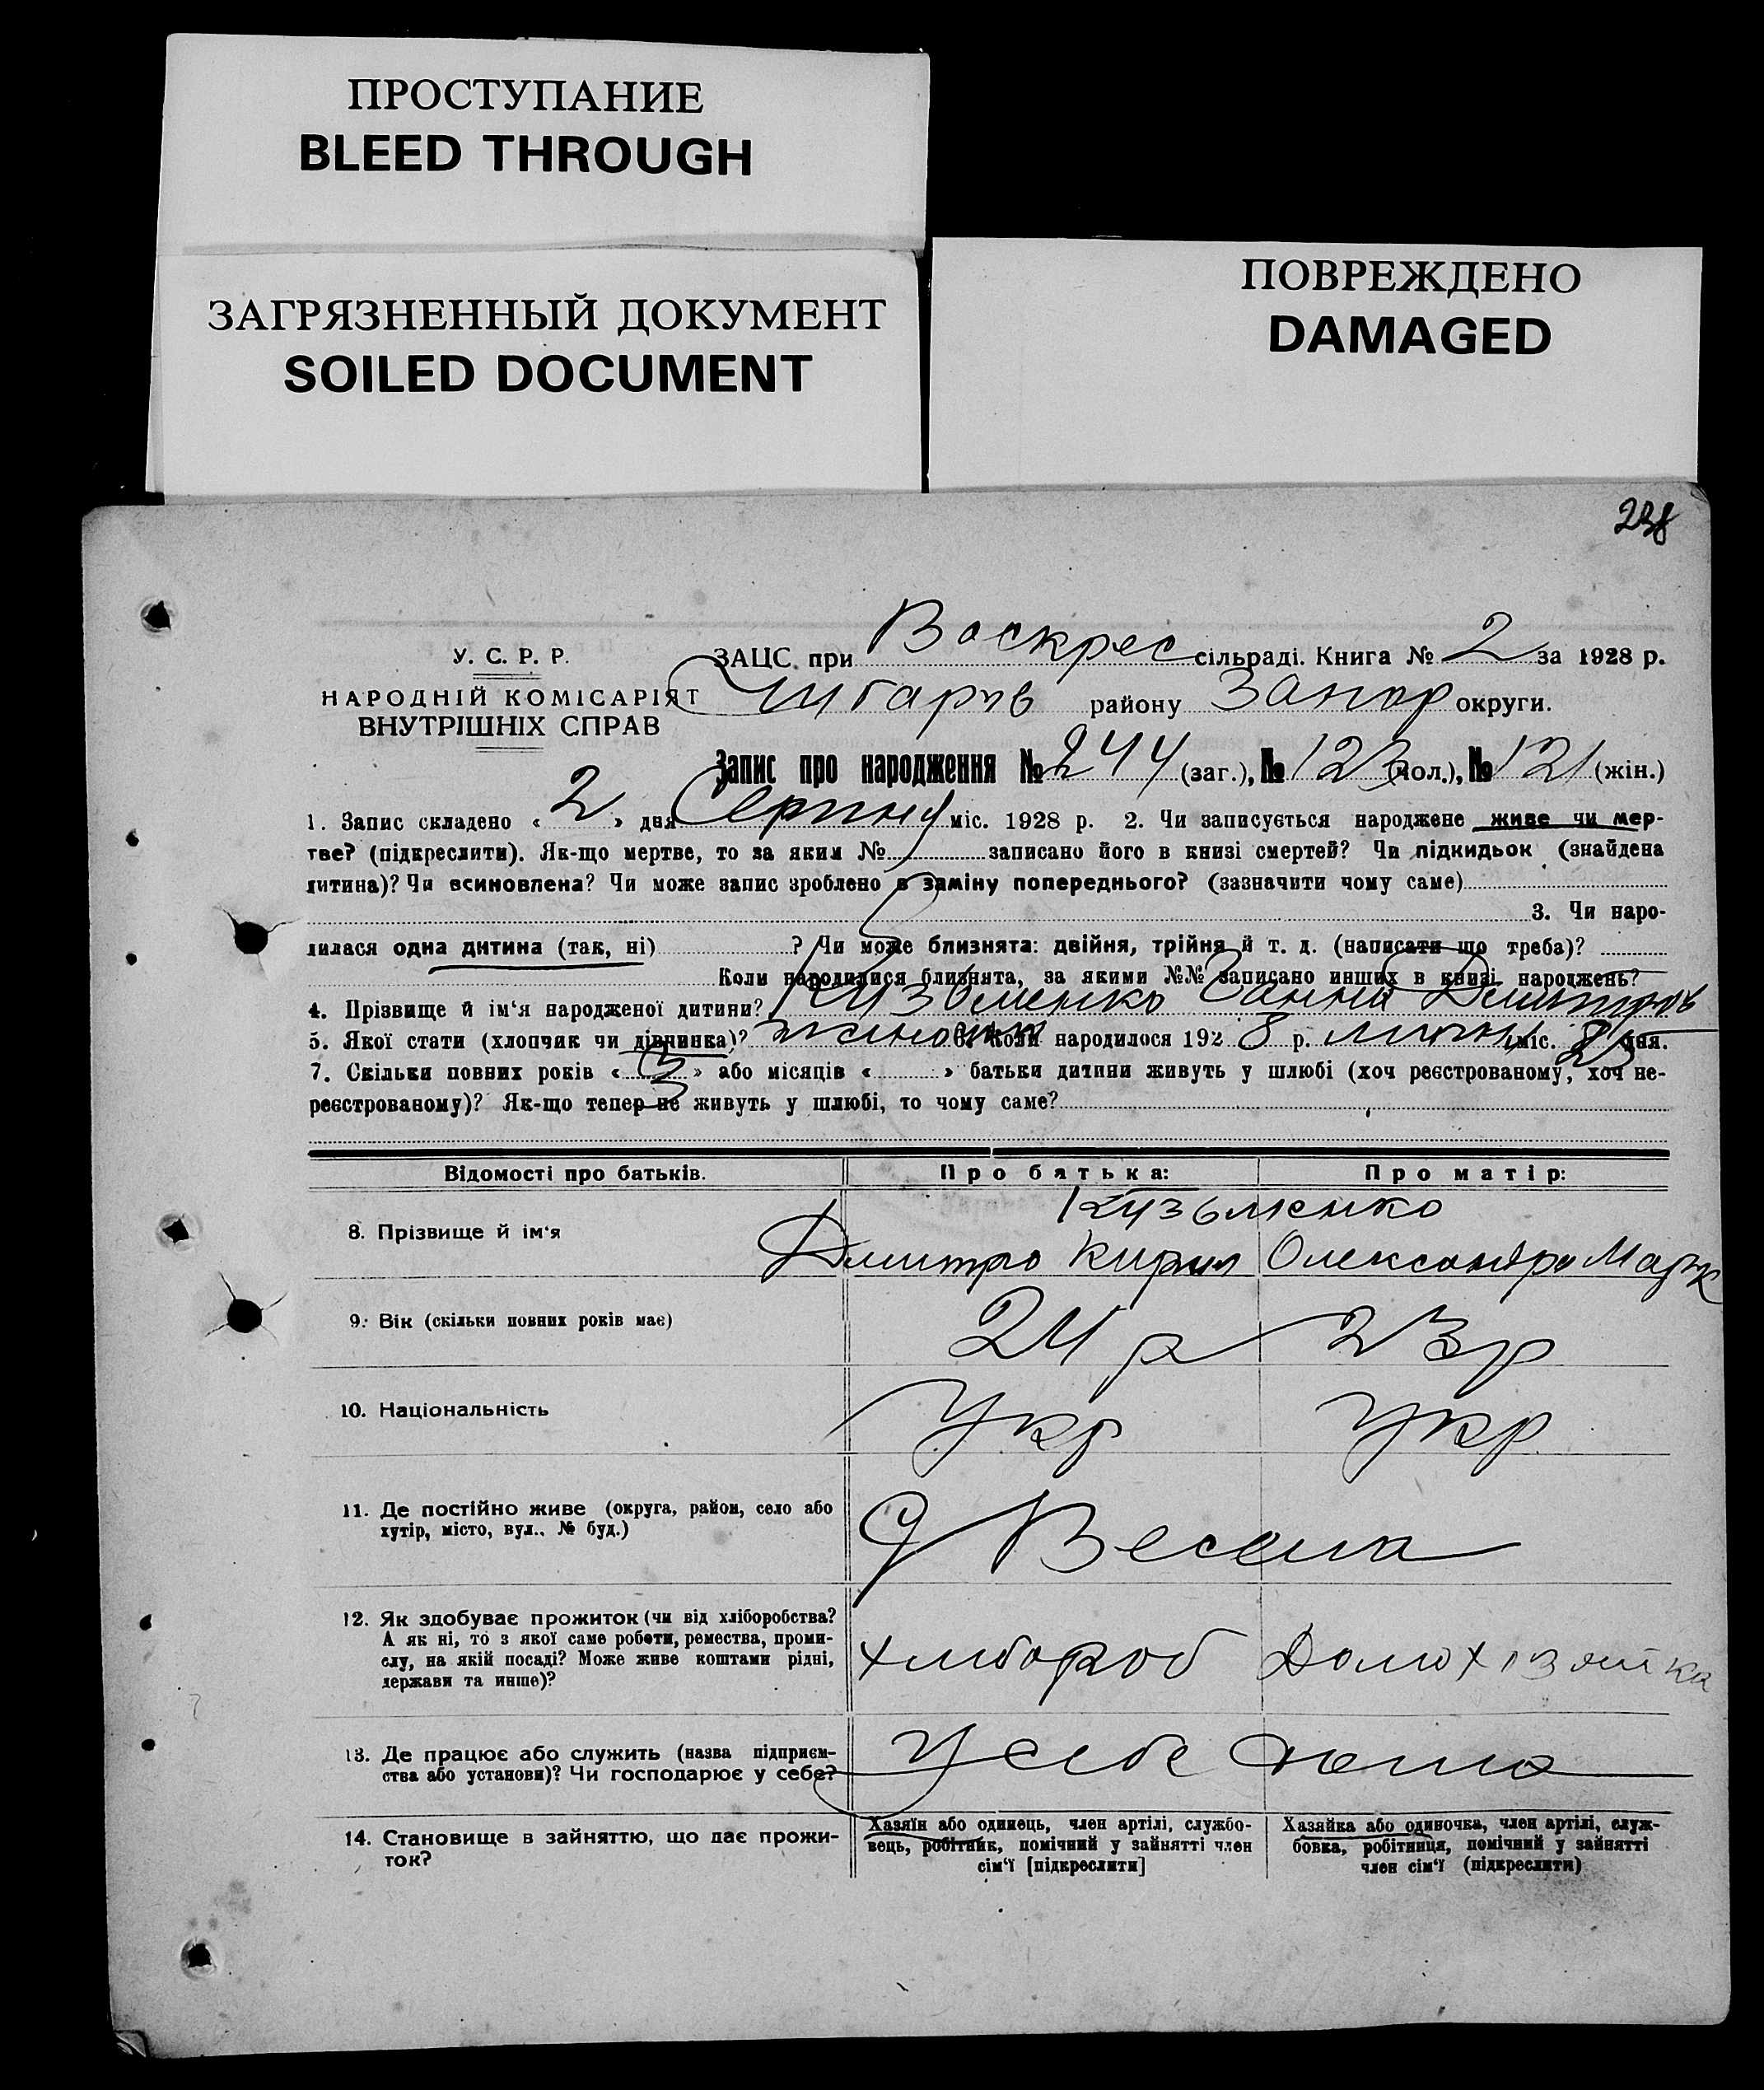 ПРОСТУПАНИЕ
BLEED THROUGH
ЗАГРЯЗНЕННЫЙ ДОКУМЕНТ
SOILED DOCUMENT
ПОВРЕЖДЕНО
DAMAGED
238
У. С. Р. Р.
НАРОДНІЙ КОМІСАРІЯТ
ВНУТРІШНІХ СПРАВ
ЗАЦС. при Воскрес сільраді. Книга № 2 за 1928 р.
району Запор округи.
Запис про народження № 244 (заг.), № 123 (чол.), № 121 (жін.)
1. Запис складено « 2 » дня Серпня міс. 1928 р. 2. Чи записується народжене живе чи мер-
тве? (підкреслити). Як-що мертве, то за яким № записано його в книзі смертей? Чи підкидьок (знайдена
дитина)? Чи всиновлена? Чи може запис зроблено в заміну попереднього? (зазначити чому саме)
3. Чи наро-
дилася одна дитина (так, ні) ? Чи може близнята: двійня, трійня й т. д. (написати що треба)?
Коли народилися близнята, за якими №№ записано инших в книзі народжень?
4. Прізвище й ім‘я народженої дитини? Кузьменко Ганна Дмитров
5. Якої стати (хлопчик чи дівчинка)? 6. Коли народилося 192 8 р. міс. дня.
7. Скільки повних років « 3 » або місяців « » батьки дитини живуть у шлюбі (хоч реєстрованому, хоч не-
реєстрованому)? Як-що тепер не живуть у шлюбі, то чому саме?
Відомості про батьків. Про батька: Про матір:
Кузьменко
8. Прізвище й ім‘я Дмитро Кирил Олександра Марк
9. Вік (скільки повних років має) 24 р 23 р
10. Національність Укр Укр
11. Де постійно живе (округа, район, село або
хутір, місто, вул., № буд.) Весела
12. Як здобуває прожиток (чи від хліборобства?
А як ні, то з якої саме роботи, ремества, проми-
слу, на якій посаді? Може живе коштами рідні,
держави та инше)? хлибороб Домохозяйка
13. Де працює або служить (назва підприєм-
ства або установи)? Чи господарює у себе? У себе дома
14. Становище в зайняттю, що дає прожи-
ток?
Хазяїн або одинець, член артілі, службо-
вець, робітник, помічний у зайнятті член
сім‘ї [підкреслити]
Хазяйка або одиночка, член артілі, служ-
бовка, робітниця, помічний у зайнятті
член сім‘ї (підкреслити)